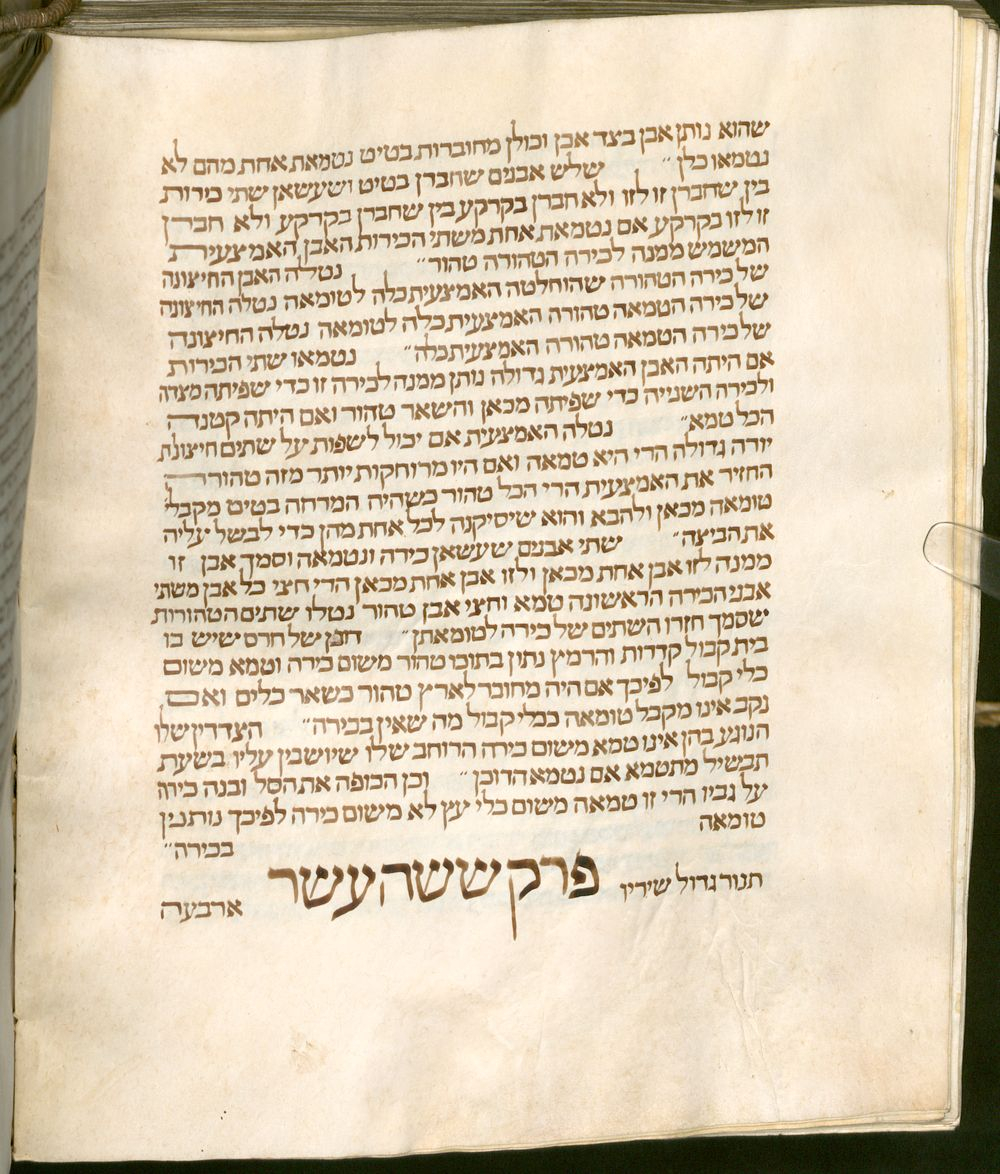 שהוא נותן אבן בצד אבן וכולן מחוברות בטיט נטמאת אחת מהם לא
נטמאו כלן ״ שלש אבנים שחברן בטיט ושעשאן שתי כירות
בין שחברן זו לזו ולא חברן בקרקע בין שחברן בקרקע ולא חברן
זו לזו בקרקע אם נטמאת אחת משתי הכירות האבן האמצעית
המשמש ממנה לכירה הטהורה טהור״ נטלה האבן החיצונה
של כירה הטהורה שהוחלטה האמצעית כלה לטומאה נטלה החיצונה
של כירה הטמאה טהורה האמצעית כלה לטומאה נטלה החיצונה
של כירה הטמאה טהורה האמצעית כלה״ נטמאו שתי הכירות
אם היתה האבן האמצעית גדולה נותן ממנה לכירה זו כדי שפיתה מצדה
ולכירה השנייה כדי שפיתה מכאן והשאר טהור ואם היתה קטנה
הכל טמא״ נטלה האמצעית אם יכול לשפות על שתים חיצונות
יורה גדולה הרי היא טמאה ואם היו מרוחקות יותר מזה טהורה
החזיר את האמצעית הרי הכל טהור כשהיה המדחה בטים מקבל
טומאה מכאן ולהבא והוא שיסיקנה לכל אחת מהן כדי לבשל עליה
את הביצה״ שתי אבנים שעשאן כירה ונטמאה וסמך אבן זו
ממנה לזו אבן אחת מכאן ולזו אבן אחת מכאן הרי חצי כל אבן משתי
אבני הכירה הראשונה טמא וחצי אבן טהור נטלו שתים הטהורות
שסמך חזרו השתים של כירה לטומאתן״ דוכן של חרס שיש בו
בית קבול קדרות והרמץ נתון בתוכו טהור משום כירה וטמא משום
כלי קבול לפיכך אם היה מחובר לארץ טהור כשאר כלים ואם
נקב אינו מקבל טומאה ככלי קבול מה שאין בכירה״ הצדדין שלו
הנוגע בהן אינו טמא משום כירה הרוחב שלו שיושבין עליו בשעת
תבשיל מתטמא אם נטמא הדוכן ״ וכן הכופה את הסל ובנה כירה
על גביו הרי זו טמאה משום כלי עץ לא משום כירה לפיכך נותנין
טומאה
בכירה״
תנור גדול שיריו פרק ששה עשר
ארבעה